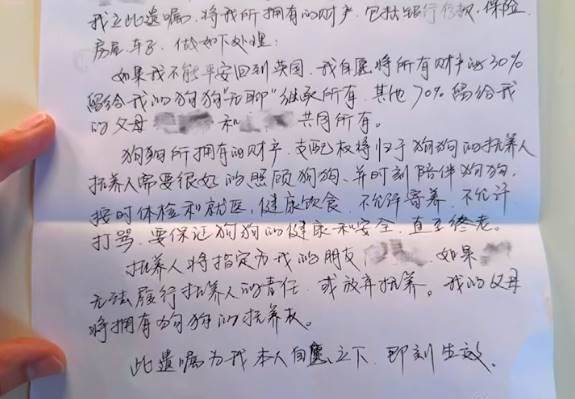 我立此遗嘱，将我所拥有的财产，包括银行存款，保险，
房屋，车子，做如下处理：
如果我不能平安回到英国，我自愿将所有财产的30%
留给我的狗狗“无聊”继承所有，其他70%留给我
的父母 和 共同所有。
狗狗所拥有的财产，支配权将归于狗狗的抚养人
抚养人需要很好的照顾狗狗，并时刻陪伴狗狗，
按时体检和就医，健康饮食，不允许寄养，不允许
打骂，要保证狗狗的健康和安全，直至终老。
抚养人将指定为我的朋友 ，如果
无法履行抚养人的责任，或放弃抚养。我的父母
将拥有狗狗的抚养权。
此遗嘱为我本人自愿立下，即刻生效。